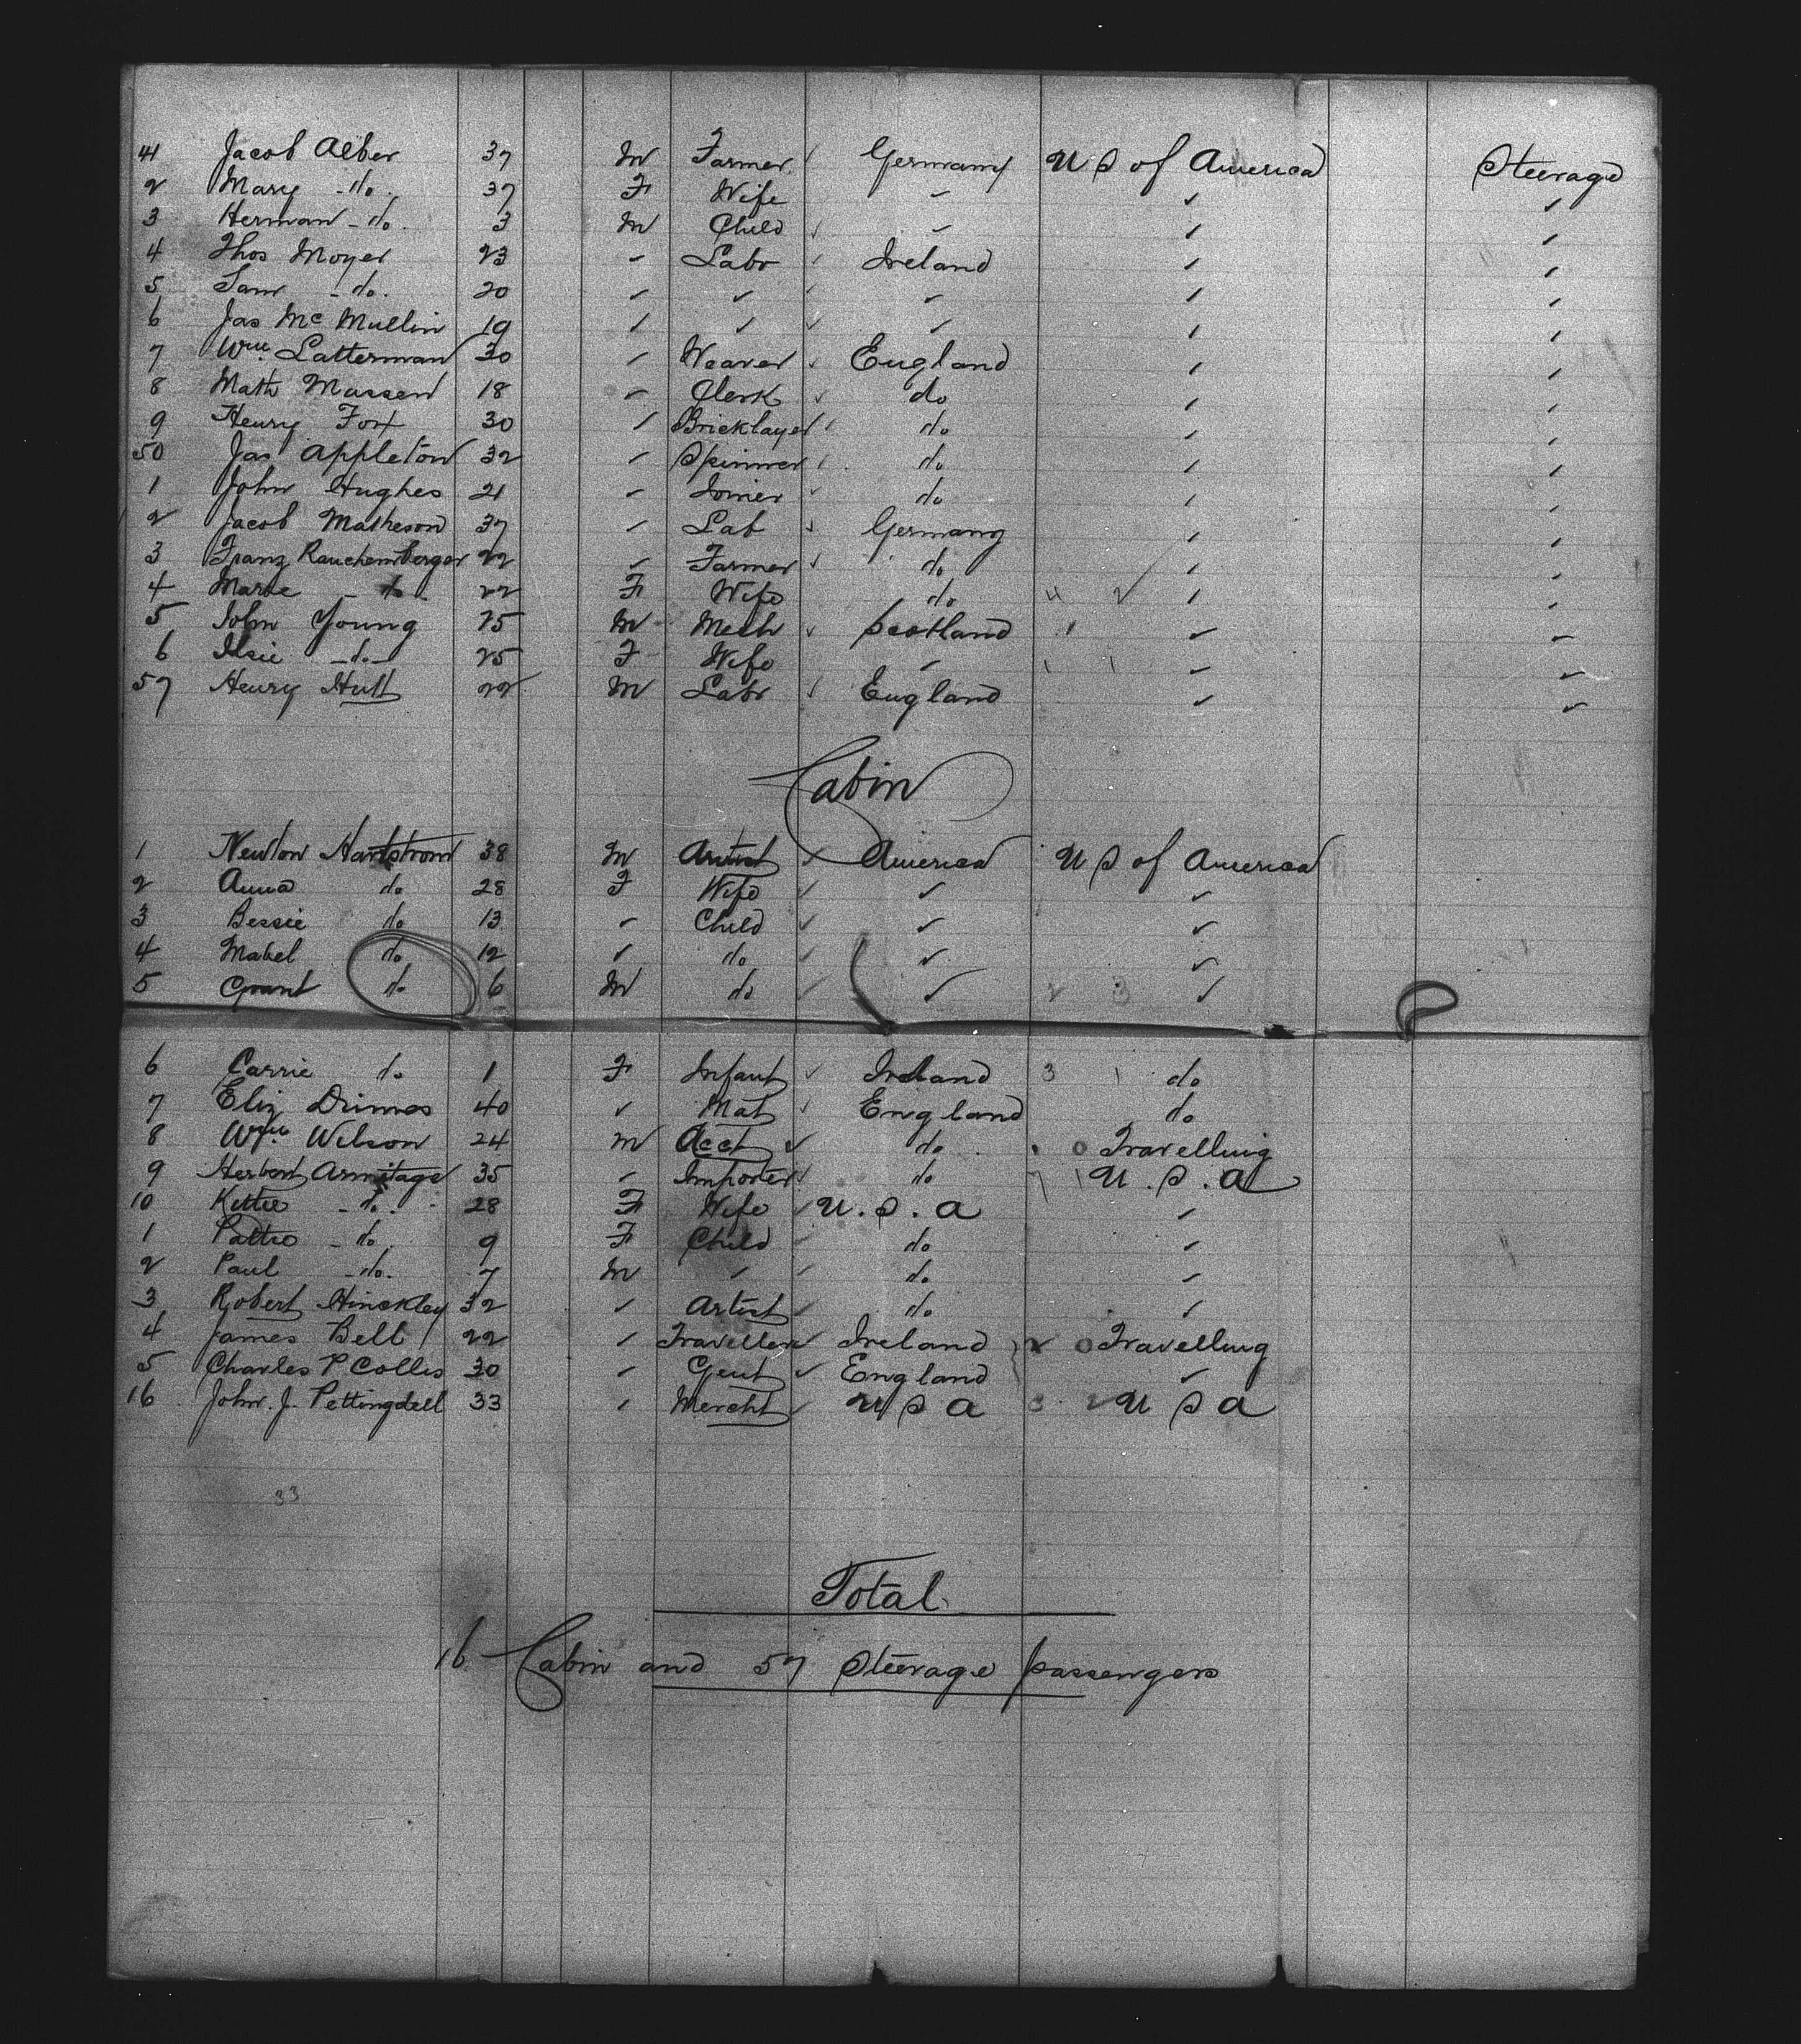 41 Jacob Alber 37 M Farmer Germany U S of America Steerage
2 Mary - do. 37 F Wife " " "
3 Herman - do. 3 M Child " " "
4 Thos Moyer 23 " Labr Ireland " "
5 Sam - do. 20 " " " " "
6 Jas Mc Mullin 19 " " " " "
7 Wm Latterman 30 " Weaver England " "
8 Math Mussen 18 " Clerk do " "
9 Henry Fox 30 " Bricklayer do " "
50 Jas Appleton 32 " Spinner do " "
1 John Hughes 21 " Joiner do " "
2 Jacob Matheson 37 " Lab Germany " "
3 Franz Rauchemberger 22 " Farmer do " "
4 Marie - do. 22 F Wife do " "
5 John Young 25 M Mech Scotland " "
6 Elsie - do - 25 F Wife " " "
57 Henry Hutt 22 M Labr England " "
Cabin
1 Newton Hartstrom 38 M Artist America U S of America
2 Anna do 28 F Wife " "
3 Bessie do 13 " Child " "
4 Mabel do 12 " do " "
5 Grant do 6 M do " 2 3 "
6 Carrie do 1 F Infant Ireland 3 1 do
7 Eliz Drimes 40 " Mat England do
8 Wm Wilson 24 M Acct do 0 Travelling
9 Herbert Armitage 35 " Importer do U. S. A
10 Kittie - do. 28 F Wife U. S. A "
1 Pattie - do. 9 F Child do "
2 Paul - do. 7 M " do "
3 Robert Hinckley 32 " Artist do "
4 James Bell 22 " Traveller Ireland 2 0 Travelling
5 Charles P Collis 30 " Gent England "
16 John. J. Pettingdell 33 " Mercht U S A 3 2 U S A
33
Total
16 Cabin and 57 Steerage passengers